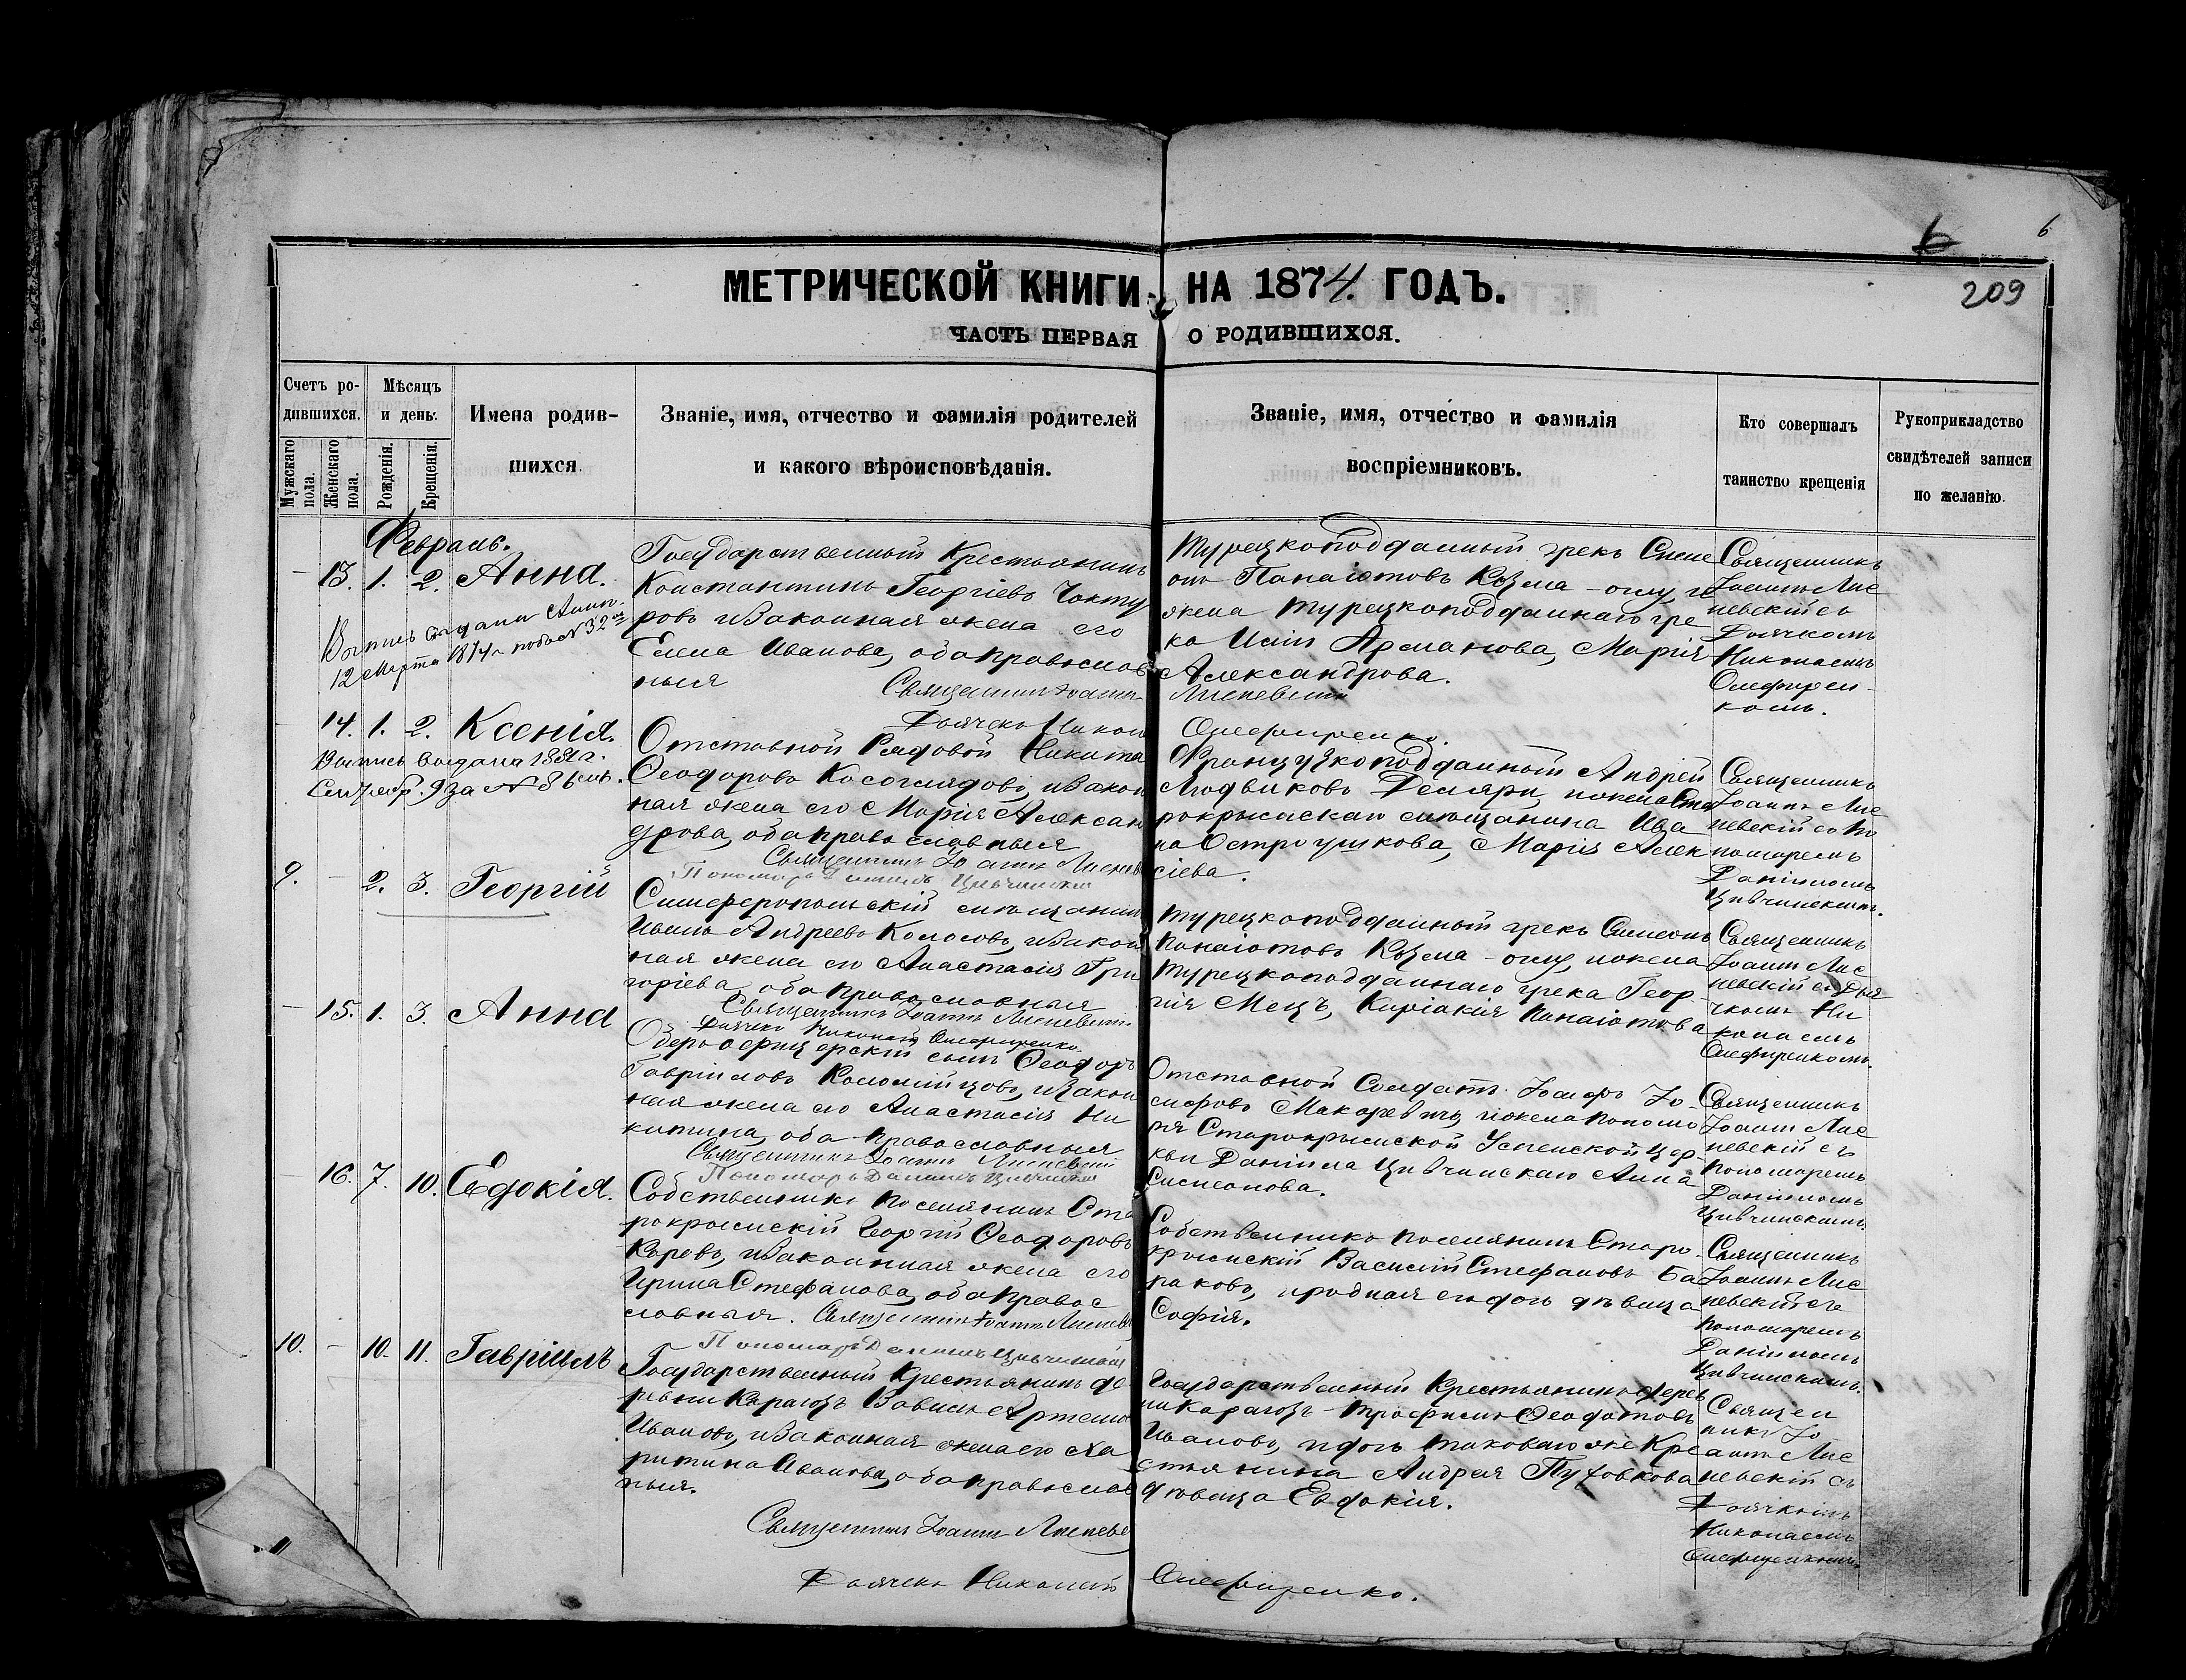 6
6
209
МЕТРИЧЕСКОЙ КНИГИ НА 1874. ГОДЪ.
ЧАСТЬ ПЕРВАЯ О РОДИВШИХСЯ.
Счетъ ро-
дившихся.
Мужскаго пола.
Женскаго пола.
Мѣсяцъ
и день.
Рожденія.
Крещенія.
Имена родив-
шихся.
Званіе, имя, отчество и фамилія родителей
и какого вѣроисповѣданія.
Званіе, имя, отчество и фамилія
воспріемниковъ.
Кто совершалъ
таинство крещенія
Рукоприкладство
свидѣтелей записи
по желанію.
Февраль.
13. 1. 2. Анна.
Выпись выдана
12 Марта 1874 г. подъ № 32
Государственный Крестьянинъ
Константинъ Георгіевъ
ровъ и законная жена его
Елена Иванова, оба православ
ныя
Священникъ Іоаннъ Лисневскій
Дьячекъ Николай Олефиренко.
Турецкоподданный грекъ Симе
онъ Панаіотовъ Козма-оглу, и
жена Турецкоподданнаго гре
ка Иліи Арманова, Марія
Александрова.
Священникъ
Іоаннъ Лис
невскій съ
Дьячкомъ
Николаемъ
Олефирен-
комъ.
14. 1. 2. Ксенія.
Выпись выдана 1881 г.
Сентябр. 9 за №
Отставной Рядовой Никита
Ѳеодоровъ Косоглядовъ, и закон
ная жена его Марія Алексан
дрова, оба православныя
Священникъ Іоаннъ Лисневскій
Пономарь Даніилъ Цивчинскій
Французкоподданный Андрей
Людвиковъ Деляри, и жена Ста
рокрымскаго мѣщанина Ива
на Остроушкова, Марія Алек
сіева.
Священникъ
Іоаннъ Лис
невскій съ По
номаремъ
Даніиломъ
Цивчинскимъ.
9. - 2. 3. Георгій
Симферопольскій мѣщанинъ
Иванъ Андреевъ Колосовъ, и закон
ная жена его Анастасія Гри
горіева, оба православныя
Священникъ Іоаннъ Лисневскій
Дьячекъ Николай Олефиренко.
Турецкоподданный грекъ Симеонъ
Панаіотовъ Козма-оглу, и жена
Турецкоподданнаго грека Геор-
гія Мецъ, Киріакія Панаіотова
Священникъ
Іоаннъ Лис
невскій съ Дья
чкомъ Ни
колаемъ
Олефиренкомъ.
- 15. 1. 3. Анна
Оберъ-офицерскій сынъ Ѳеодоръ
Гавриловъ Коломійцовъ, и закон
ная жена его Анастасія Ни
китина, оба православныя
Священникъ Іоаннъ Лисневскій
Пономарь Даніилъ Цивчинскій
Отставной Солдатъ Іосифъ Іо-
сифовъ Макаревичъ, и жена Понома
ря Старокрымской Успенской Цер-
кви Даніила Цивчинскаго Анна
Симеонова.
Священникъ
Іоаннъ Лис
невскій съ
Пономаремъ
Даніиломъ
Цивчинскимъ.
- 16. 7. 10. Евдокія.
Собственникъ поселянинъ Ста
рокрымскій Георгій Ѳеодоровъ
Коревъ, и законная жена его
Ирина Стефанова, оба правос
лавныя. Священникъ Іоаннъ Лисневскій
Пономарь Даніилъ Цивчинскій
Собственникъ поселянинъ Старо-
крымскій Василій Стефановъ Ба
раковъ, и родная его дочь дѣвица
Софія.
Священникъ
Іоаннъ Лис
невскій съ
Пономаремъ
Даніиломъ
Цивчинскимъ.
10. - 10. 11. Гавріилъ
Государственный Крестьянинъ де-
ревни Карагозъ Вавилъ Артемо
Ивановъ, и законная жена его Ха
ритина Иванова, оба православ
ныя.
Священникъ Іоаннъ Лисневскій
Дьячекъ Николай Олефиренко.
Государственный Крестьянинъ дерев
ни Карагозъ Трофимъ Ѳеодотовъ
Ивановъ, и дочь таковаго же Кре
стьянина Андрея Пузовкова
дѣвица Евдокія.
Священ
никъ Іо
аннъ Лис
невскій съ
Дьячкомъ
Николаемъ
Олефиренкомъ.